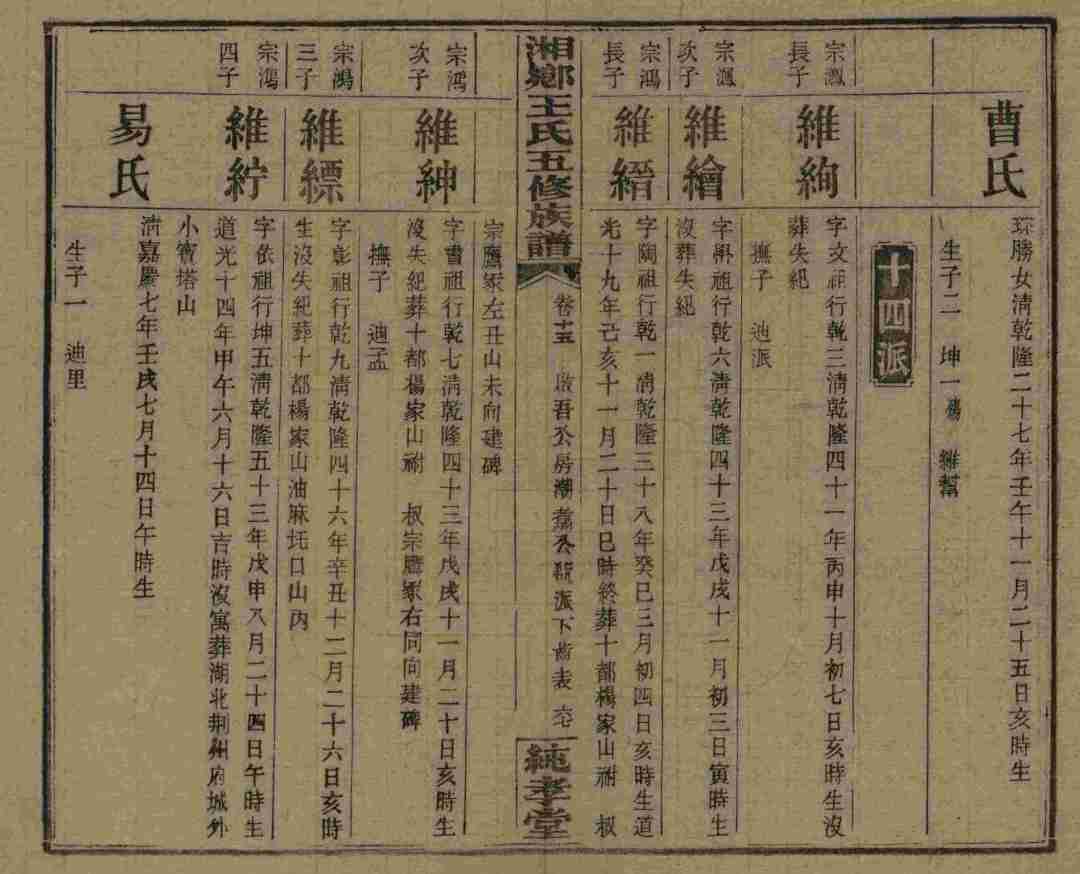 曹氏
琮勝女淸乾隆二十七年壬午十一月二十五日亥時生
生子二 坤一殤 維幫
十四派
宗鳳長子
維絢
字文祖行乾三淸乾隆四十一年丙申十月初七日亥時生沒
葬失紀
撫子 迪派
宗鳳次子
維繪
字學祖行乾六淸乾隆四十三年戊戌十一月初三日寅時生
沒葬失紀
宗鴻長子
維縉
字陶祖行乾一淸乾隆三十八年癸巳三月初四日亥時生道
光十九年己亥十一月二十日巳時終葬十都楊家山祔 叔
湘鄉王氏五修族譜
卷十五 啟吾公房潮 公 派下齒表
純孝堂
宗鷹冢左丑山未向建碑
宗鴻次子
維紳
字書祖行乾七淸乾隆四十三年戊戌十一月二十日亥時生
沒失紀葬十都楊家山祔 叔宗鷹冢右同向建碑
撫子 迪孟
宗鴻三子
維縹
字彰祖行乾九淸乾隆四十六年辛丑十二月二十六日亥時
生沒失紀葬十都楊家山油麻圫口山內
宗鴻四子
維紵
字依祖行坤五淸乾隆五十三年戊申八月二十四日午時生
道光十四年甲午六月十六日吉時沒寓葬湖北荆州府城外
小寶塔山
易氏
淸嘉慶七年壬戌七月十四日午時生
生子一 迪里